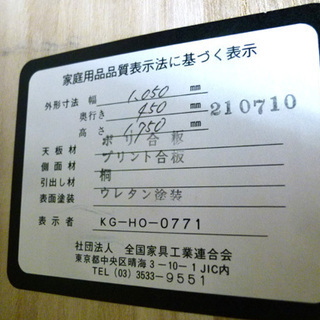 家庭用品品質表示法に基づく表示
外形寸法 幅 1,050 mm
奥行き 450 mm 210710
高さ 1,750 mm
天板材 ポリ合板
側面材 プリント合板
引出し材 桐
表面塗装 ウレタン塗装
表示者 KG-HO-0771
社団法人 全国家具工業連合会
東京都中央区晴海3-10-1 JIC内
TEL (03) 3533-9551